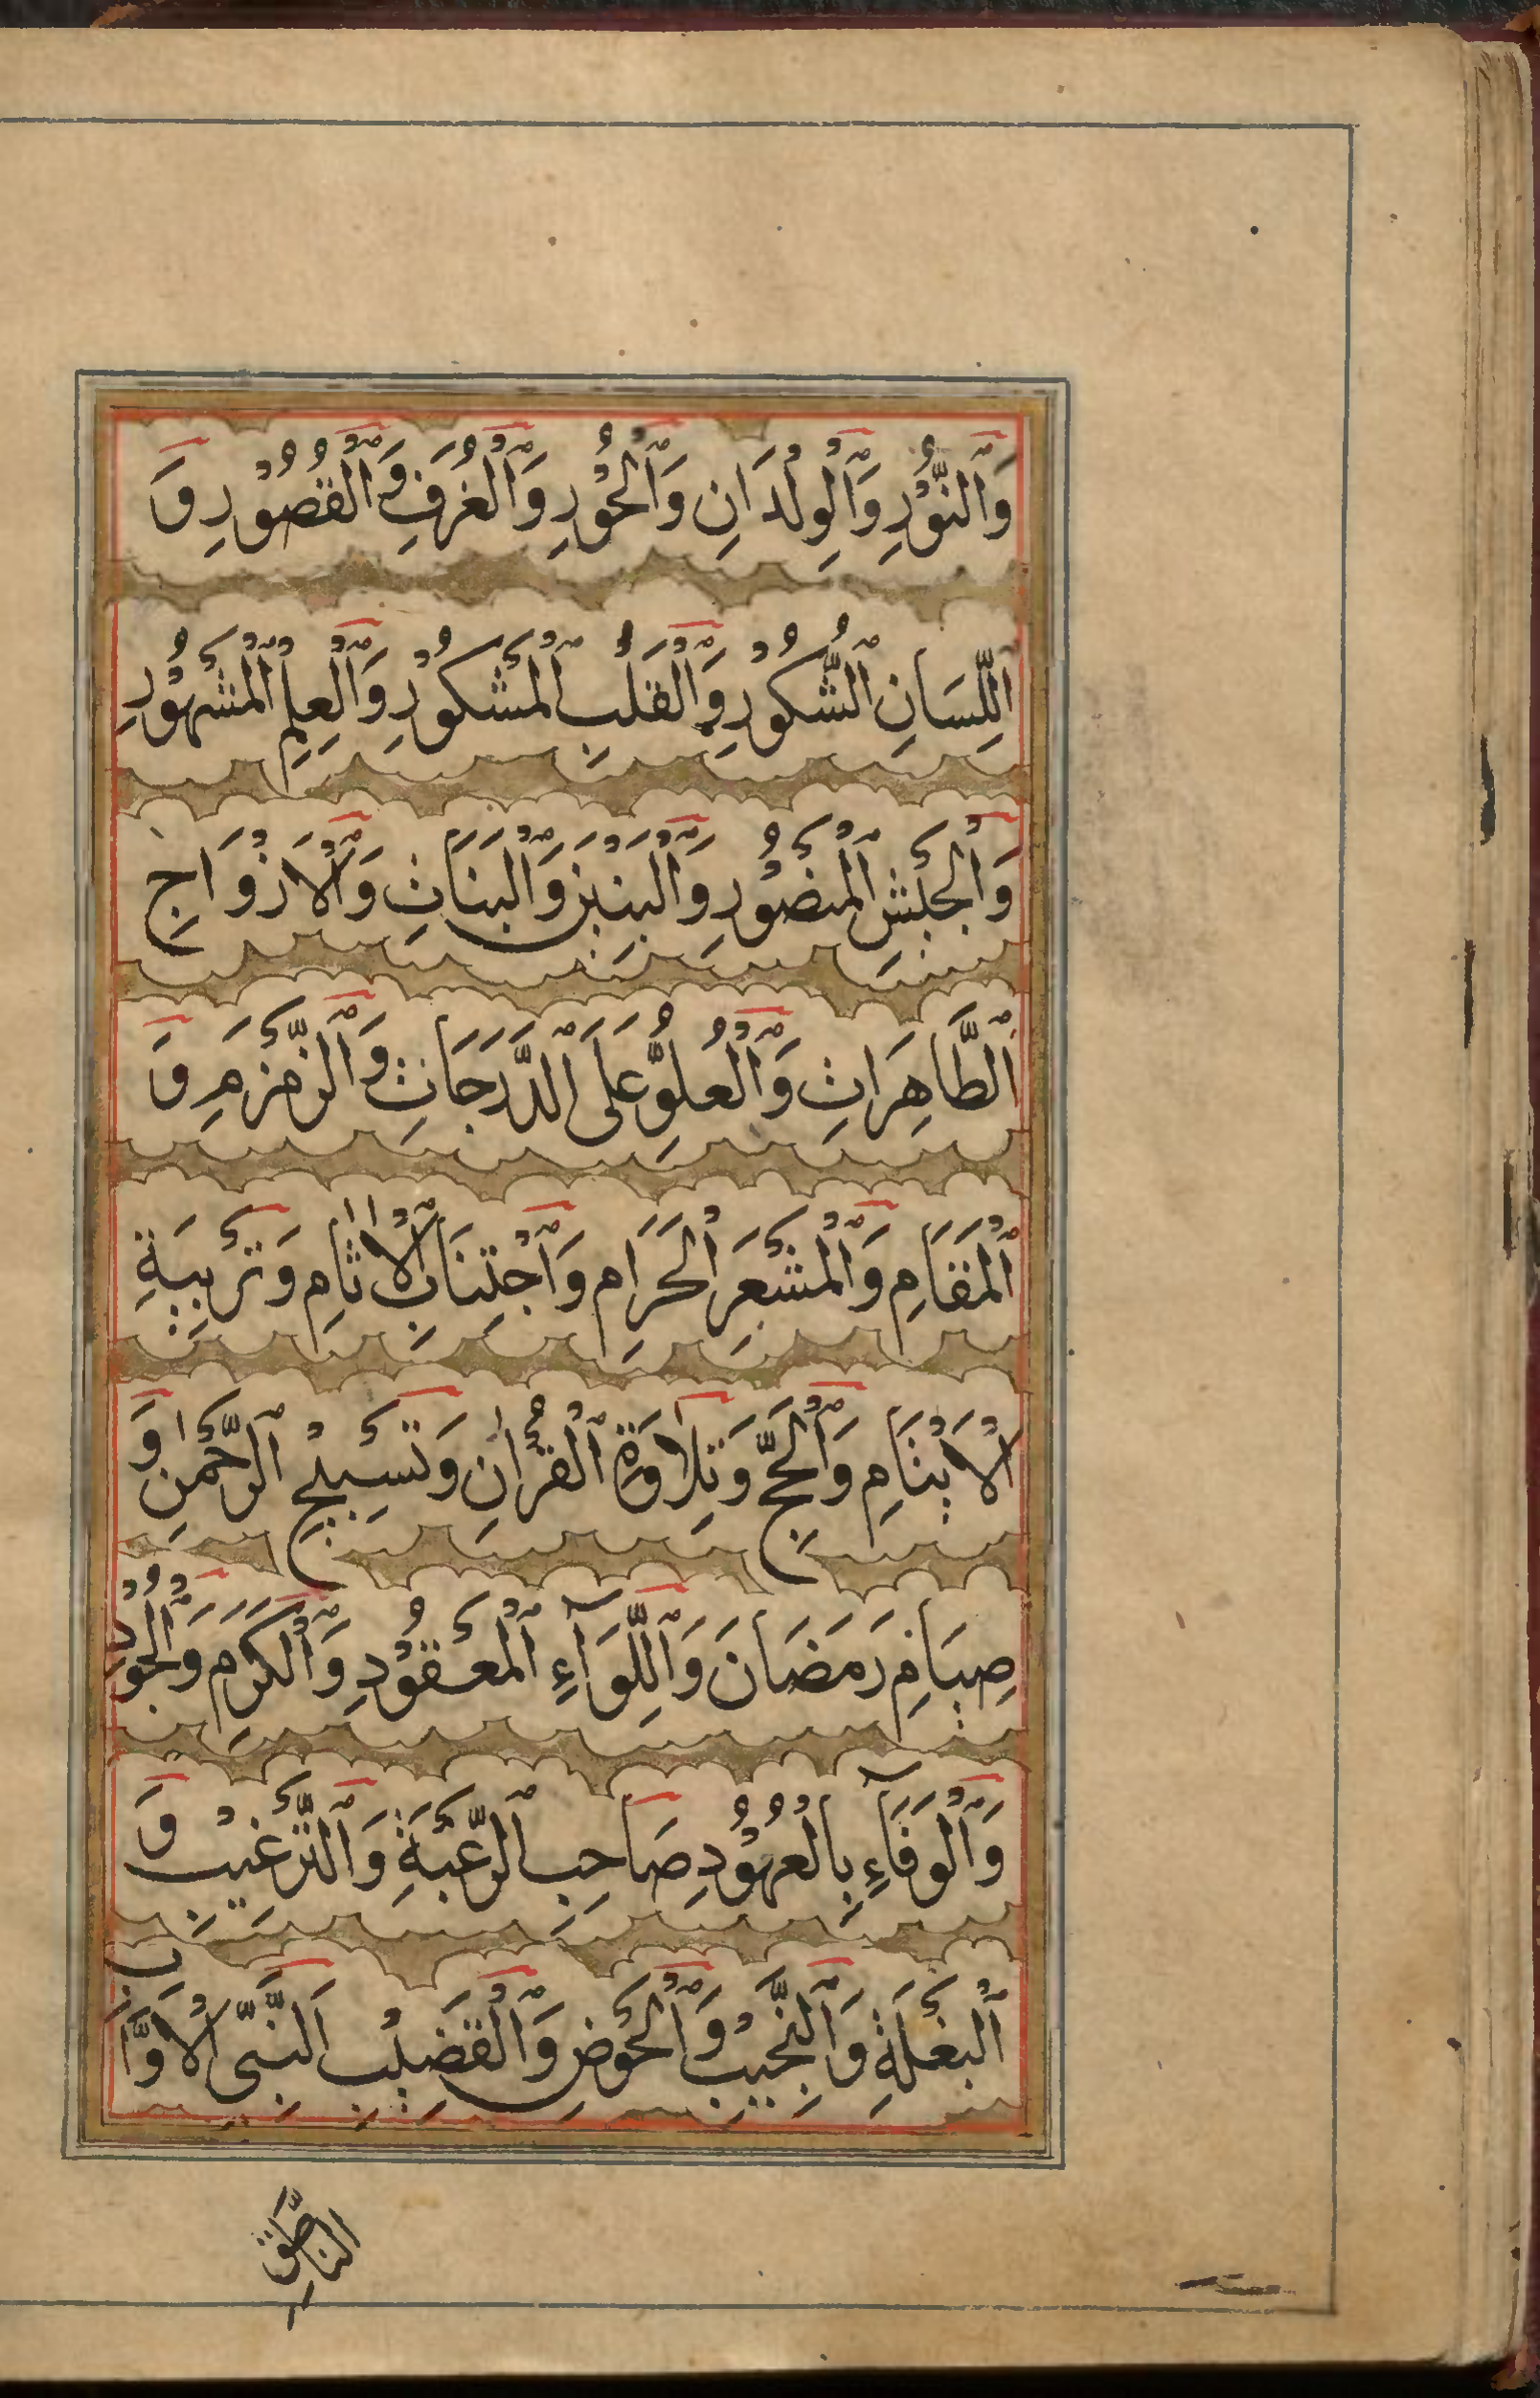 وَالنُّوْرِ وَالْوِلْدَانِ وَالْحُوْرِ وَالْغُرَفِ وَالْقُصُوْرِ وَ
اللِّسَانِ الشُّكُوْرِ وَالْقَلْبِ الْمَشْكُوْرِ وَالْعِلْمِ الْمَشْهُوْرِ
وَالْجَيْشِ الْمَنْصُوْرِ وَالْبَنِيْنَ وَالْبَنَاتِ وَالْاَزْوَاجِ
الطَّاهِرَاتِ وَالْعُلُوِّ عَلَى الدَّرَجَاتِ وَالزَّمْزَمِ وَ
الْمَقَامِ وَالْمَشْعَرِ الْحَرَامِ وَاجْتِنَابِ الْاٰثَامِ وَتَرْبِيَةِ
الْاَيْتَامِ وَالْحَجِّ وَتِلَاوَةِ الْقُرْاٰنِ وَتَسْبِيْحِ الرَّحْمٰنِ وَ
صِيَامِ رَمَضَانَ وَاللِّوَآءِ الْمَعْقُوْدِ وَالْكَرَمِ وَالْجُوْدِ
وَالْوَفَآءِ بِالْعُهُوْدِ صَاحِبِ الرَّغْبَةِ وَالتَّرْغِيْبِ وَ
الْبَغْلَةِ وَالنَّجِيْبِ وَالْحَوْضِ وَالْقَضِيْبِ اَلنَّبِيِّ الْاَوَّابِ
النَّاطِقِ